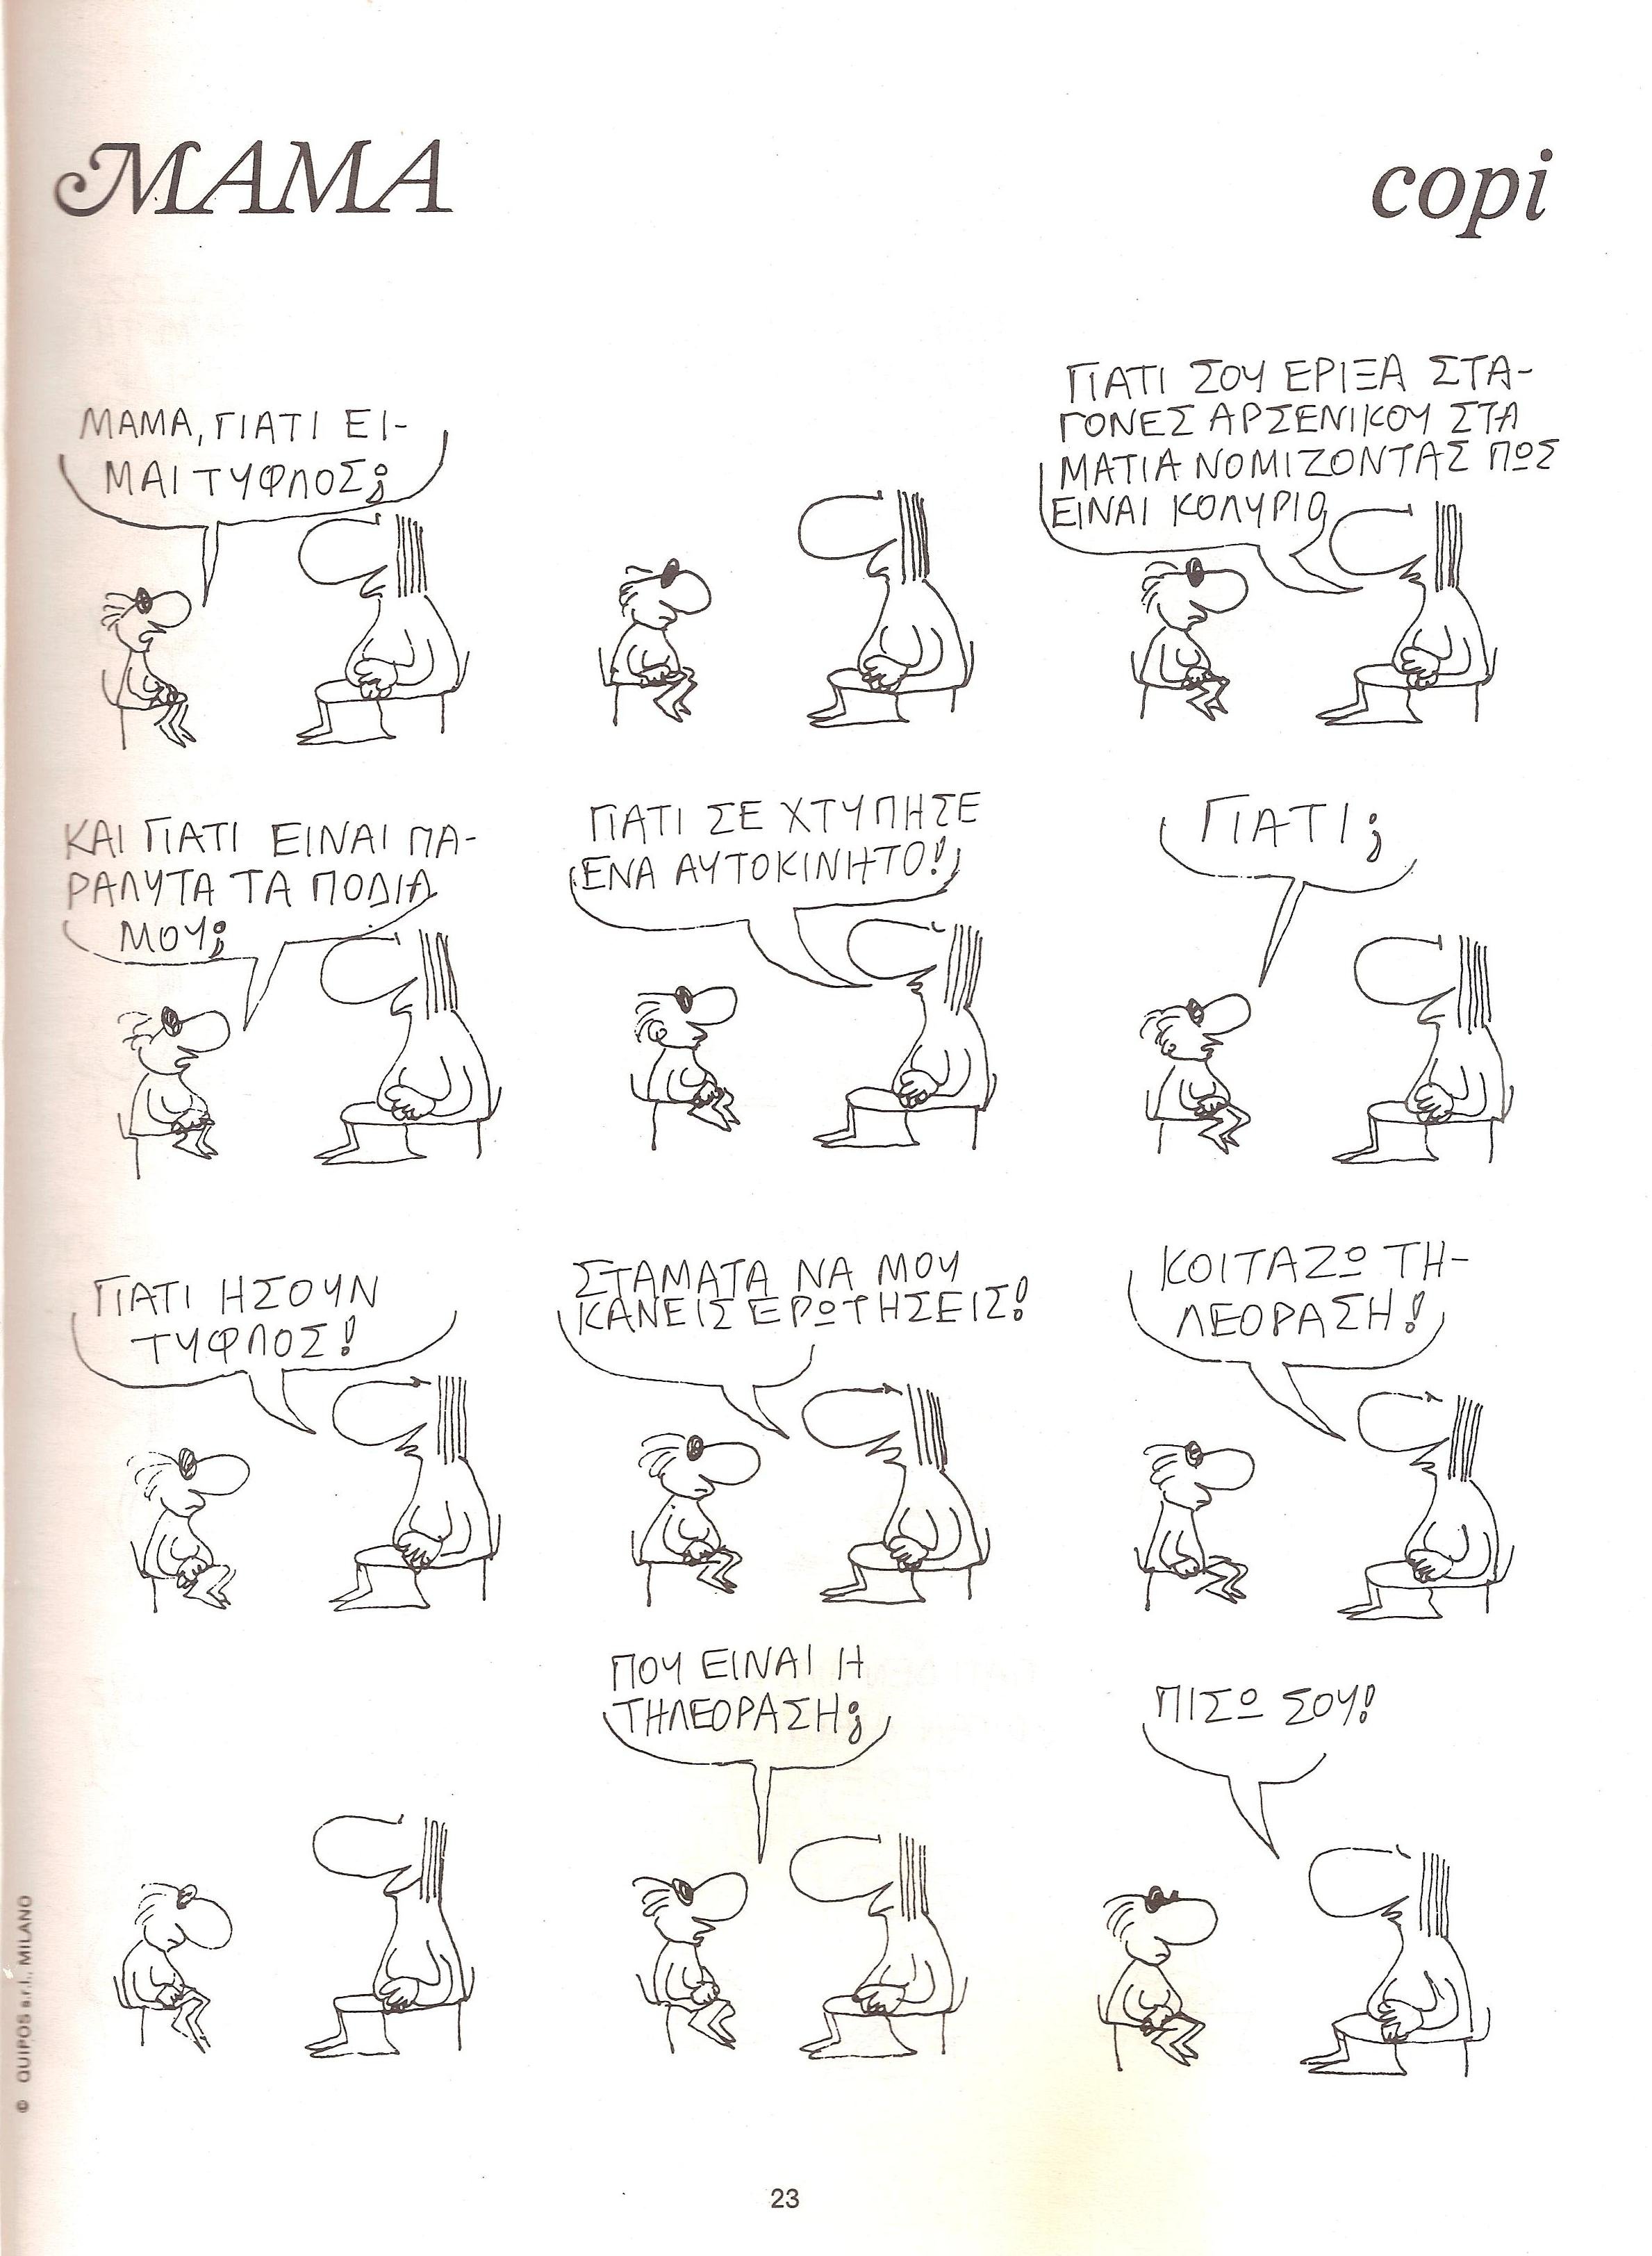 MAMA
copi
ΜΑΜΑ, ΓΙΑΤΙ ΕΙ-
ΜΑΙ ΤΥΦΛΟΣ;
ΓΙΑΤΙ ΣΟΥ ΕΡΙΞΑ ΣΤΑ-
ΓΟΝΕΣ ΑΡΣΕΝΙΚΟΥ ΣΤΑ
ΜΑΤΙΑ ΝΟΜΙΖΟΝΤΑΣ ΠΩΣ
ΕΙΝΑΙ ΚΟΛΥΡΙΟ
ΚΑΙ ΓΙΑΤΙ ΕΙΝΑΙ ΠΑ-
ΡΑΛΥΤΑ ΤΑ ΠΟΔΙΑ
ΜΟΥ;
ΓΙΑΤΙ ΣΕ ΧΤΥΠΗΣΕ
ΕΝΑ ΑΥΤΟΚΙΝΗΤΟ!
ΓΙΑΤΙ;
ΓΙΑΤΙ ΗΣΟΥΝ
ΤΥΦΛΟΣ!
ΣΤΑΜΑΤΑ ΝΑ ΜΟΥ
ΚΑΝΕΙΣ ΕΡΩΤΗΣΕΙΣ!
ΚΟΙΤΑΖΩ ΤΗ-
ΛΕΟΡΑΣΗ!
ΠΟΥ ΕΙΝΑΙ Η
ΤΗΛΕΟΡΑΣΗ;
ΠΙΣΩ ΣΟΥ!
© QUIPOS s.r.l., MILANO
23